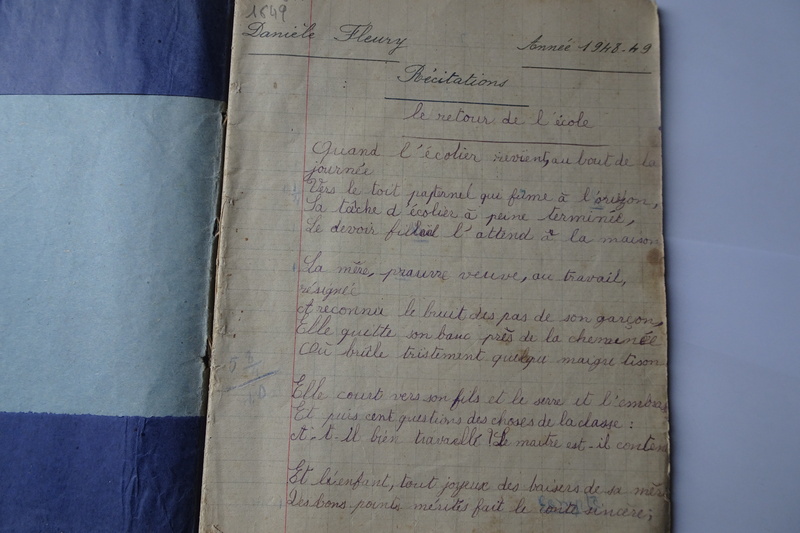 1649
Danièle Fleury
Année 1948-49
Récitations
le retour de l'école
Quand l'écolier revient, au bout de la
journée
Vers le toit paternel qui fûme à l'orizon,
Sa tâche d'écolier à peine terminée,
Le devoir filial l'attend à la maison
La mère, prauvre veuve, au travail,
résignée
A reconnu le bruit des pas de son garçon,
Elle quitte son banc près de la cheminée
Où brûle tristement quelqu maigre tison
Elle court vers son fils et le serre et l'embras
Et puis cent questions des choses de la classe :
A-t-il bien travaillé ? Le maître est-il conten
Et l'enfant, tout joyeux des baisers de sa mèr
Des bons points mérités fait le conte sincère;